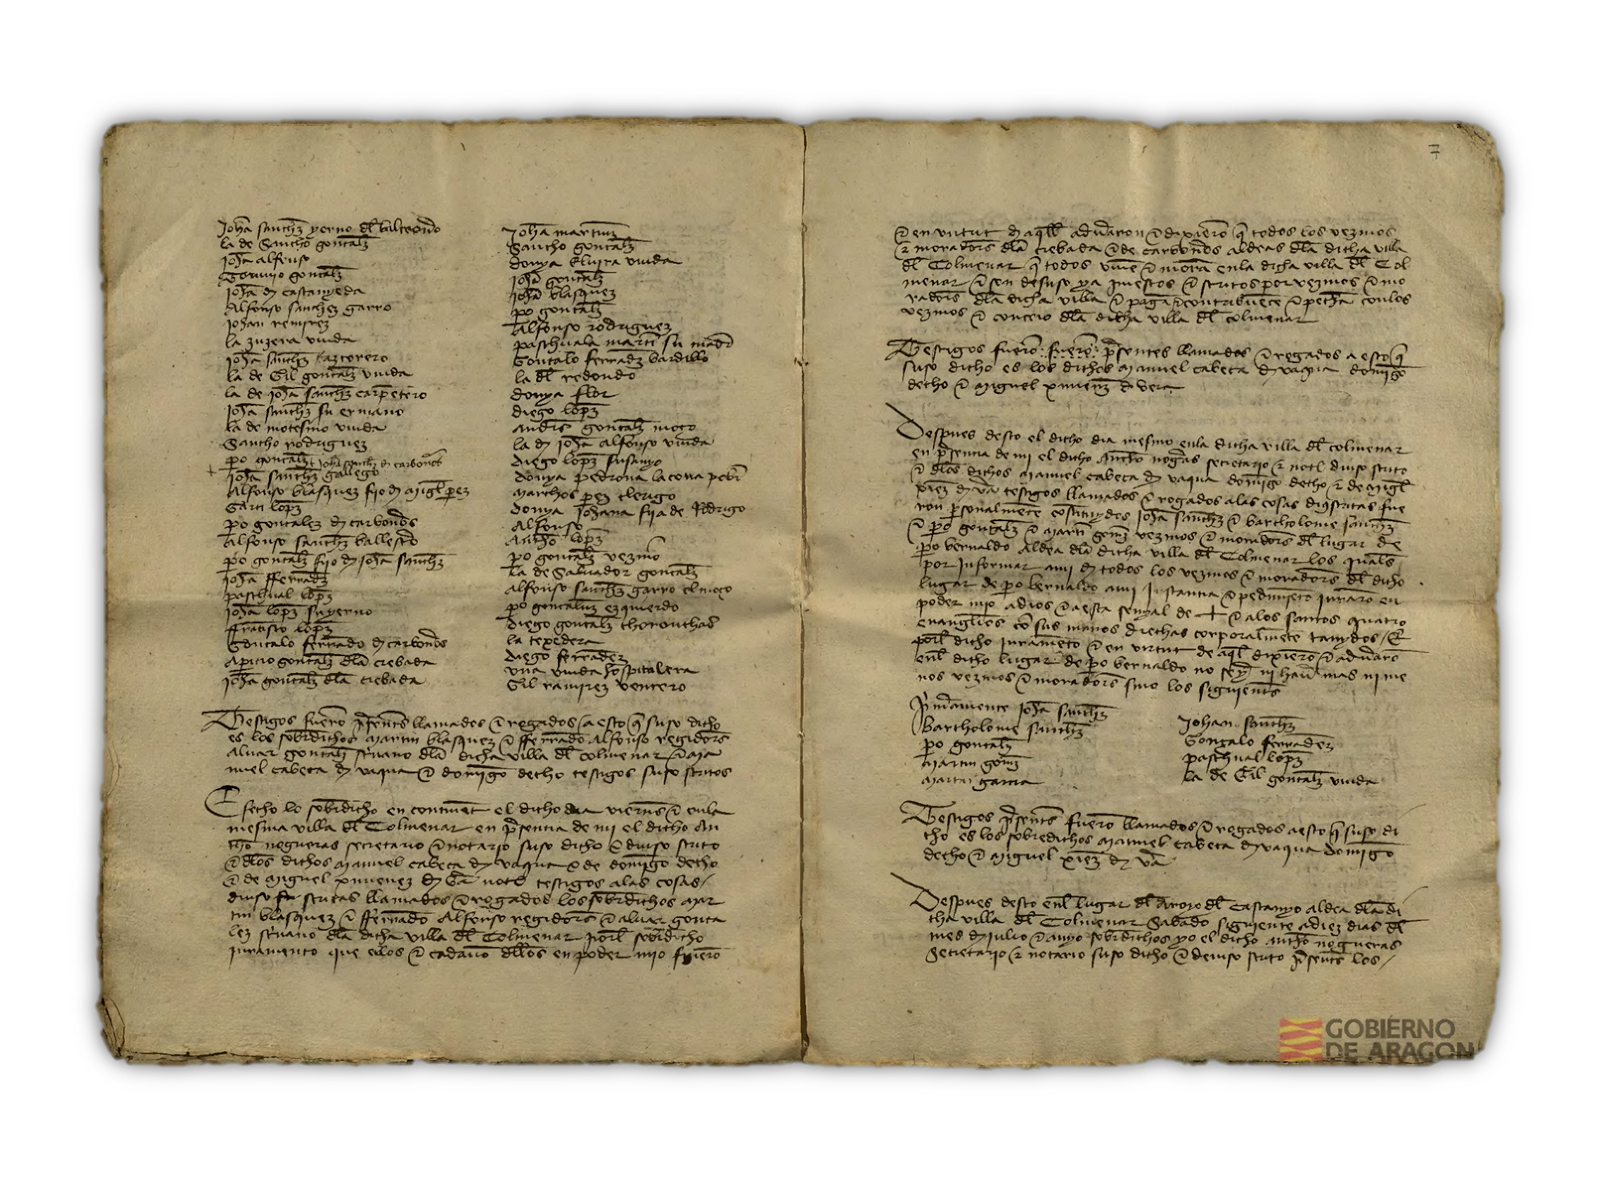 Johan sanchez yerno del
la de Sancho gonçalez
Johan alfonso
gonçalez
Johan de castanyeda
Alfonso sanchez garro
Johan remirez
la viuda
Johan sanchez
la de Gil gonçalez viuda
la de Johan sanchez carpentero
Johan sanchez su ermano
la de motesino viuda
Sancho rodriguez
pero gonçalez Johan sanchez de carbones
+ Johan sanchez gallego
Alfonso blasquez fijo de migel perez
Garci lopez
pero gonçalez de
Alfonso sanchez ballestero
pero gonçalez fijo de Johan sanchez
Johan fferrandez
paschual lopez
Johan lopez su yerno
ffrancisco lopez
Goncalo ferrando de
Aparicio gonçalez dla
Johan gonçalez dla
Johan martinez
Sancho gonçalez
donya Eluira viuda
Johan gonçalez
Johan blasquez
pero gonçalez
Alfonso rodriguez
paschuala martin su madre
Goncalo ferrandez bardillo
la del redondo
donya flor
diego lopez
andres gonçalez moco
la de Johan alfonso viuda
diego lopez
donya pedrona la
marchos perez clerigo
donya Johana fija de Rodrigo
Alfonso
Ancho lopez
pero gonçalez vezino
la de Saluador gonçalez
alfonso sanchez garro el moço
pero gonçaluez ezquierdo
diego gonçalez
la texedera
diego ferrandez
una viuda hospitalera
Gil ramirez ventero
Testigos fueron presentes llamados e rogados a esto que suso dicho
es los sobredichos martin blasquez e fferrando Alfonso regidores
aluar gonçalez scriuano dla dicha villa del Colmenar e ma
nuel cabeca de vaqua e domingo decho testigos suso scritos
E fecho lo sobredicho en continent el dicho dia viernes e en la
mesma villa del Colmenar en presencia de mi el dicho An
tho nogueras secretario e notario suso dicho e diuso scrito
e dlos dichos manuel cabeca de vaqua e de domingo decho
e de miguel xmenez de vera notario testigos a las cosas
diuso scritas llamados e rogados los sobredichos mar
tin blasquez e fferrando Alfonso regidores e aluar gonça
lez scriuano dla dicha villa del Colmenar por el sobredicho
iuramento que ellos e cadauno dellos en poder mio fizieron
7
e en virtut de aquell aduraron e dixieron que todos los vezinos
e moradores dla e de aldeas dla dicha villa
del Colmenar que todos viuen e moran en la dicha villa del Col
menar e sen desuso ya puestos e scritos por vezinos e mo
radores dla dicha villa e pagan e contribuecen e pechan con los
vezinos e conceio dla dicha villa del Colmenar
Testigos fueron presentes llamados e rogados a esto que
suso dicho es los dichos manuel cabeca de vaqua domingo
decho e miguel xmenez de vera
Despues desto el dicho dia mesmo en la dicha villa del colmenar
en presencia de mi el dicho Antho nogueras secretario e notario diuso scrito
e dlos dichos manuel cabeca de vaqua domingo decho e de miguel
xmenez de vera testigos llamados e rogados a las cosas diuso scritas fue
ron personalmente constituydos Johan sanchez e bartholome sanchez
e pero gonçalez e martin gomez vezinos e moradores del lugar de
pero bernaldo aldea dla dicha villa del Colmenar los quales
por informar a mi de todos los vezinos e moradores del dicho
lugar de pero bernaldo a mi instancia e pedimiento iuraron en
poder mio a dios e a esta senyal de + e a los santos quatro
euangelios con sus manos drechas corporalmente tanydos E
por el dicho iuramento e en virtut de aquel dixieron e aduraron
en el dicho lugar de pero bernaldo no seyer ni hauer mas ni me
nos vezinos e moradores sino los siguientes
primerament Johan sanchez
Bartholome sanchez
pero gonçalez
martin gomez
martin garcia
Johan sanchez
Gonçalo ferrandez
paschual lopez
la de Gil gonçalez viuda
Testigos presentes fueron llamados e rogados a esto que suso di
cho es los sobredichos manuel cabeca de vaqua domingo
decho e miguel xmenez de vera
Despues desto en el lugar del Aroyo del Castanyo aldea dla di
cha villa del Colmenar Sabado siguiente a diez dias del
mes de julio e anyo sobredichos yo el dicho Antho nogueras
Secretario e notario suso dicho e deiuso scrito presentes los
GOBIERNO
DE ARAGON